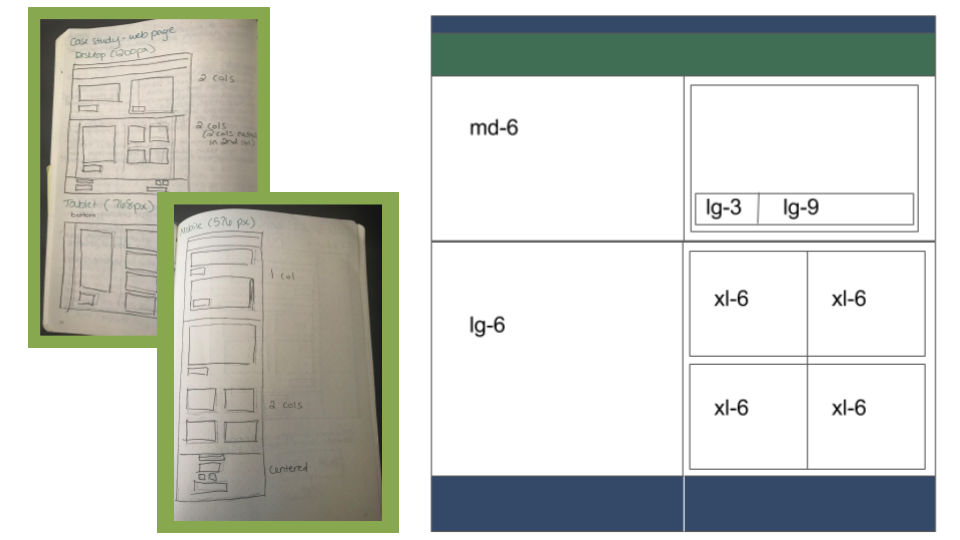 Case study - web page
Desktop (1200px)
2 cols
2 cols
(2 cols
in 2nd col)
Tablet (768px)
bottom
Mobile (576 px)
1 col
2 cols
Centered
md-6
lg-3
lg-9
lg-6
xl-6
xl-6
xl-6
xl-6